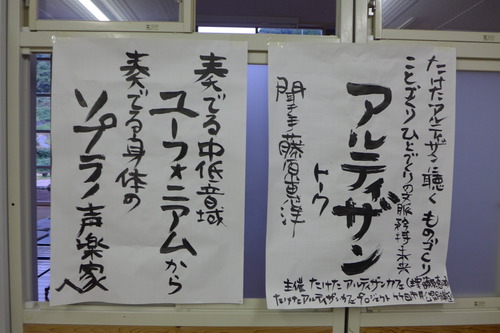 たけたアルティザン聴く ものづくり
ことづくりひとづくりの文脈 矜持 未来
アルティザン
トーク
聞き手 藤原恵洋
主催 たけたアルティザンカフェ
たけたアルティザンカフェプロジェクト
奏でる中低音域
ユーフォニアムから
奏でる身体の
ソプラノ声楽家へ